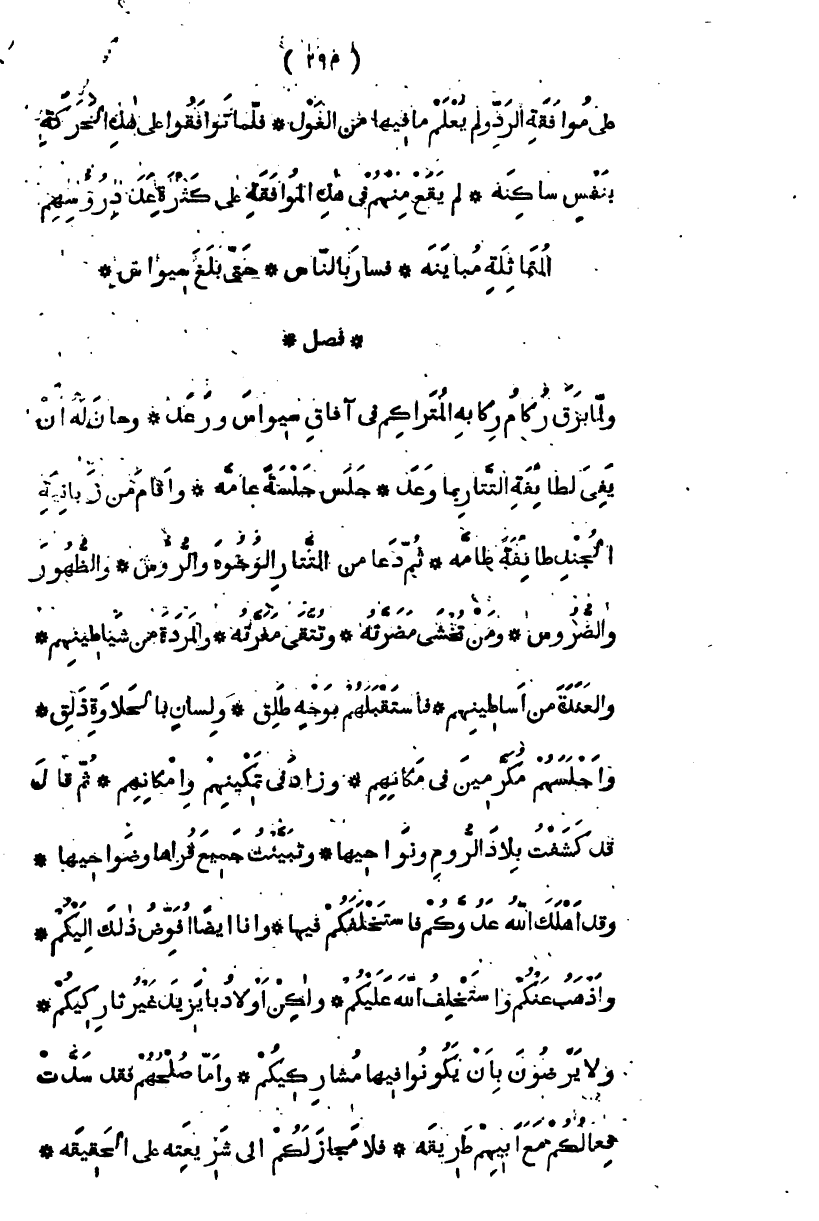 ( ٢٩٣ )
على مُوافَقَةِ الرَّدِّ ولم يُعْلَمْ ما فيها من الغَوْل * فلَمّا تَوافَقُوا على هٰذِهِ الحَرَكَةِ
بنَفْسٍ ساكِنَه * لم يَقَعْ مِنْهُم في هٰذِهِ المُوافَقَةِ على كَثْرَةِ عَدَدِ رُؤُسِهِم
المُتَماثِلَةِ مُبايَنَه * فسارَ بالنّاس * حَتّى بَلَغَ سِيواس *
* فصل *
ولَمّا بَرَقَ رُكامُ رِكابِهِ المُتَراكِمِ في آفاقِ سِيواسَ ورَعَدَ * وحانَ لَهُ أنْ
يَفِيَ لطائِفَةِ التَّتارِ بما وَعَد * جلَس جَلْسَةً عامَّه * وأقامَ من زَبانِيَةِ
الجُنْدِ طائِفَةً طامَّه * ثُمّ دَعا من التَّتارِ الوُجُوهَ والرُّؤُسَ * والظُّهُورَ
والضُّرُوس * ومَن تُخْشى مَضَرَّتُه * وتُتَّقى مَعَرَّتُه * والمَرَدَةَ من شَياطِينِهِم *
والعَنَدَةَ من أساطِينِهِم * فاسْتَقْبَلَهُم بوَجْهٍ طَلِق * ولِسانٍ بالحَلاوَةِ ذَلِق *
وأجْلَسَهُمْ مُكَرَّمِينَ في مَكانِهِم * وزادَ في تَمْكِينِهِمْ وإمْكانِهِم * ثُمّ قالَ
قد كَشَفْتُ بِلادَ الرُّومِ ونَواحِيها * وتَبَيَّنْتُ جَمِيعَ قُراها وضَواحِيها *
وقد أهْلَكَ اللّٰهُ عَدُوَّكُمْ فاسْتَخْلَفَكُمْ فيها * وانا ايضًا أُفَوِّضُ ذٰلكَ اليْكُمْ *
وأذْهَبُ عَنْكُمْ وأسْتَخْلِفُ اللّٰهَ عَلَيْكُمْ * ولٰكِنْ أوْلادُ بايَزِيدَ غَيْرُ تارِكِيكُمْ *
ولا يَرْضَوْنَ بِأنْ يَكُونُوا فيها مُشارِكِيكُمْ * وأمّا صُلْحُهُمْ فقد سَدَّتْ
فِعالُكُمْ مع أبِيهِمْ طَرِيقَه * فلا مَجازَ لَكُمْ الى شَرِيعَتِه على الحَقِيقَه *